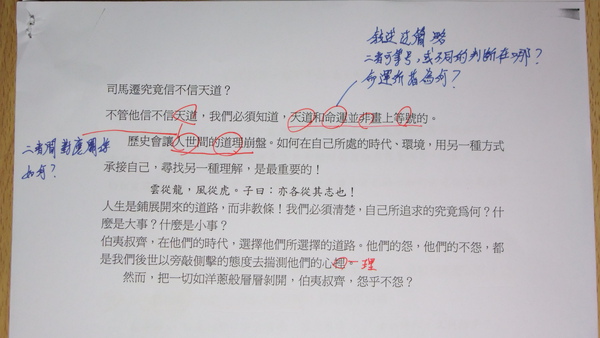 敍述过簡略
二者可等号,或不同的判断在哪?
命運所指為何?
司馬遷究竟信不信天道?
不管他信不信天道,我們必須知道,天道和命運並非畫上等號的。
歷史會讓人世間的道理崩盤。如何在自己所處的時代、環境,用另一種方式
承接自己,尋找另一種理解,是最重要的!
二者間對應關係
如何?
雲從龍,風從虎。子曰:亦各從其志也!
人生是鋪展開來的道路,而非教條!我們必須清楚,自己所追求的究竟為何?什
麼是大事?什麼是小事?
伯夷叔齊,在他們的時代,選擇他們所選擇的道路。他們的怨,他們的不怨,都
是我們後世以旁敲側擊的態度去揣測他們的心裡。理
然而,把一切如洋蔥般層層剝開,伯夷叔齊,怨乎不怨?